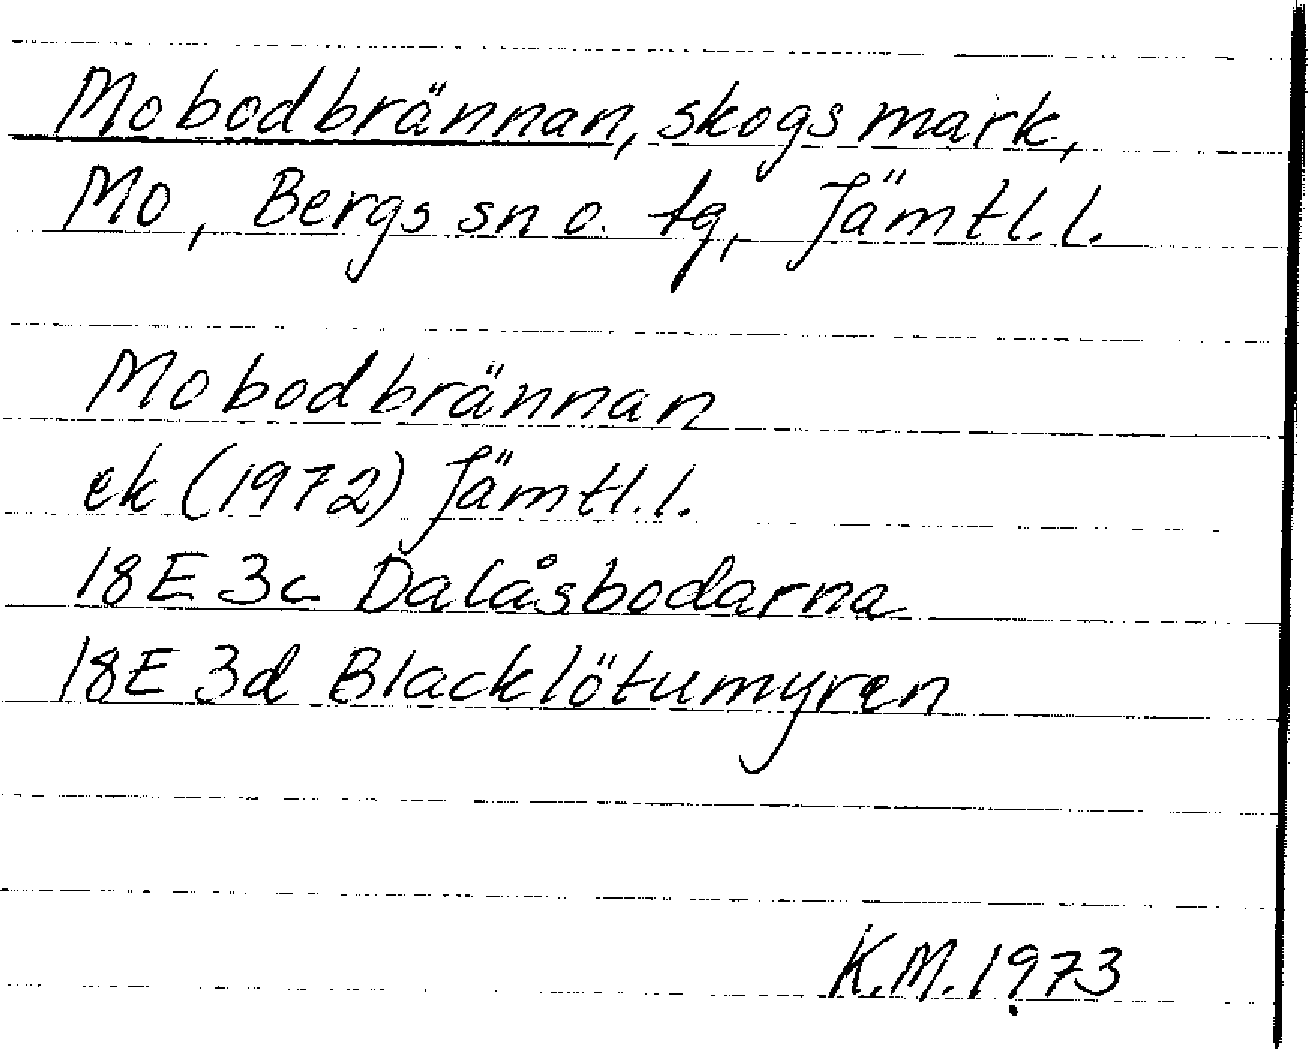 Mobodbrännan, skogsmark,
Mo, Bergs sn o. tg, Jämtl. l.
Mobodbrännan
ek (1972) Jämtl. l.
18E 3c Dalåsbodarna
18E 3d Blacklötumyren
K.M. 1973